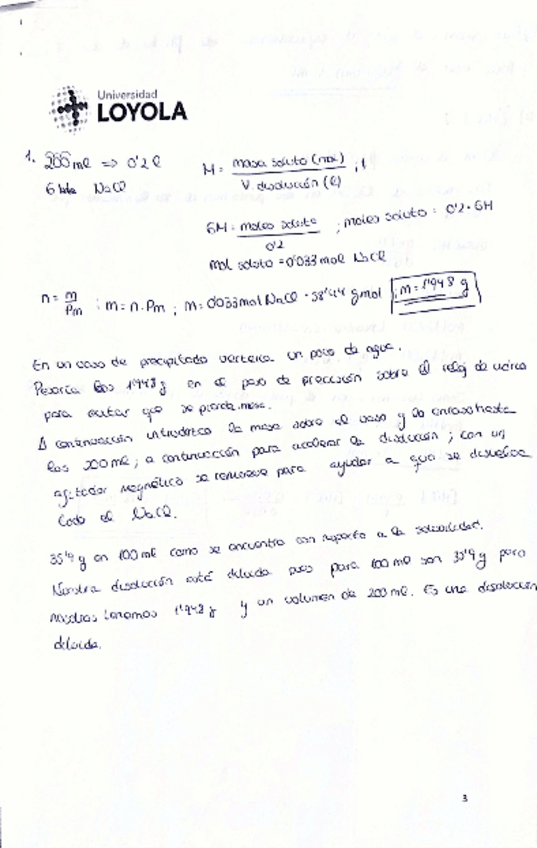 Universidad
LOYOLA
1. 200 ml => 0'2 l
M = masa soluto (mol) / V disolución (l)
6 NaCl
6M = moles soluto / 0'2 ; moles soluto = 0'2 · 6M
mol soluto = 0'033 mol NaCl
n = m / Pm ; m = n · Pm ; m = 0'033 mol NaCl · 58'44 g mol ; m = 1'948 g
En un vaso de precipitado vertería un poco de agua.
Pesaría los 1'948 g en el peso de precisión sobre el reloj de vidrio
para evitar que se pierda masa.
A continuación introduzco la masa sobre el vaso y lo enraso hasta
los 200 ml; a continuación para acelerar la disolución; con un
agitador magnético se remueve para ayudar a que se disuelva
todo el NaCl.
35'9 g en 100 ml como se encuentra con respecto a la solubilidad.
Nuestra disolución está diluida pues para 100 ml son 35'9 g pero
nosotros tenemos 1'948 g y un volumen de 200 ml. Es una disolución
diluida.
3